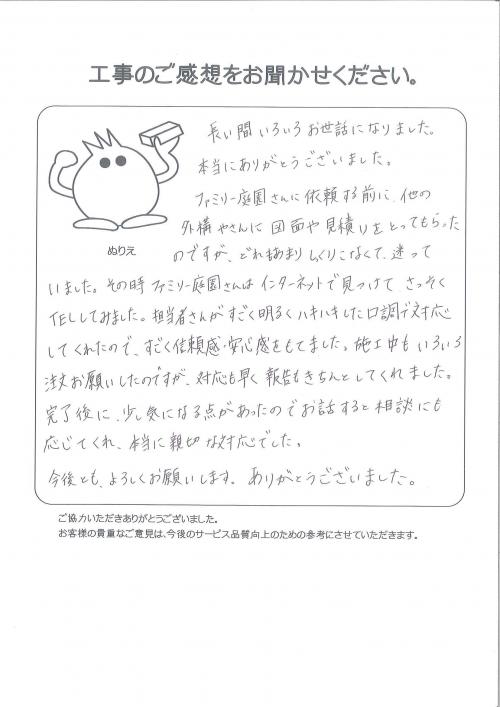 工事のご感想をお聞かせください。
長い間いろいろお世話になりました。
本当にありがとうございました。
ファミリー庭園さんに依頼する前に、他の
外構やさんに図面や見積りをとってもらった
のですが、どれもあまりしっくりこなくて、迷って
いました。その時ファミリー庭園さんはインターネットで見つけてさっそく
TELしてみました。担当者さんがすごく明るくハキハキした口調で対応
してくれたので、すごく信頼感・安心感をもてました。施工中もいろいろ
注文お願いしたのですが、対応も早く報告もきちんとしてくれました。
完了後に、少し気になる点があったのでお話すると相談にも
応じてくれ、本当に親切な対応でした。
今後とも、よろしくお願いします。ありがとうございました。
ぬりえ
ご協力いただきありがとうございました。
お客様の貴重なご意見は、今後のサービス品質向上のための参考にさせていただきます。